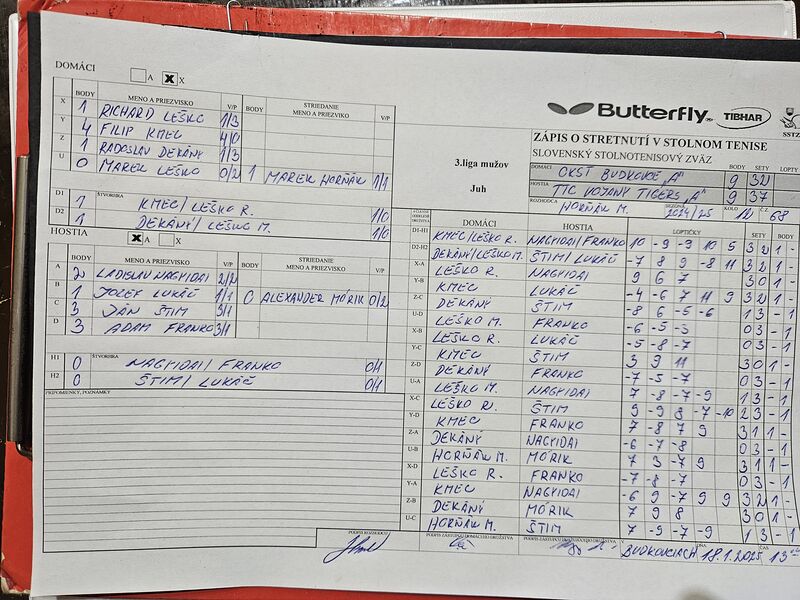 DOMÁCI A X X
BODY MENO A PRIEZVISKO V/P BODY STRIEDANIE MENO A PRIEZVIKO V/P
X 1 RICHARD LEŠKO 1/3
Y 4 FILIP KMEC 4/0
Z 1 RADOSLAV DEKÁNY 1/3
U 0 MAREK LEŠKO 0/2 1 MAREK HORŇÁK 1/1
D1 1 ŠTVORHRA KMEC/LEŠKO R. 1/0
D2 1 DEKÁNY/LEŠKO M. 1/0
HOSTIA X A X
BODY MENO A PRIEZVISKO V/P STRIEDANIE MENO A PRIEZVISKO V/P
A 2 LADISLAV NAGYIDAI 2/2
B 1 JOZEF LUKÁČ 1/1 0 ALEXANDER MÓRIK 0/2
C 3 JÁN ŠTIM 3/1
D 3 ADAM FRANKO 3/1
H1 0 ŠTVORHRA NAGYIDAI/FRANKO 0/1
H2 0 ŠTIM/LUKÁČ 0/1
PRIPOMIENKY, POZNÁMKY
PODPIS ROZHODCU
Butterfly TIBHAR SSTZ
3.liga mužov
Juh
ZÁPIS O STRETNUTÍ V STOLNOM TENISE
SLOVENSKÝ STOLNOTENISOVÝ ZVÄZ BODY SETY LOPTY
DOMÁCI OKST BUDKOVCE "A" 9 32
HOSTIA TTC VOJANY TIGERS "A" 9 37
ROZHODCA HORŇÁK M. SEZÓNA 2024/25 KOLO 12 Č.Z. 68
DOMÁCI HOSTIA LOPTIČKY SETY BODY
D1-H1 KMEC/LEŠKO R. NAGYIDAI/FRANKO 10 -9 -9 10 5 3 2 1 -
D2-H2 DEKÁNY/LEŠKO M. ŠTIM/LUKÁČ -7 8 9 -8 11 3 2 1 -
X-A LEŠKO R. NAGYIDAI 9 6 7 3 0 1 -
Y-B KMEC LUKÁČ -4 -6 7 11 9 3 2 1 -
Z-C DEKÁNY ŠTIM -8 6 -5 -6 1 3 - 1
U-D LEŠKO M. FRANKO -6 -5 -3 0 3 - 1
X-B LEŠKO R. LUKÁČ -5 -8 -7 0 3 - 1
Y-C KMEC ŠTIM 3 9 11 3 0 1 -
Z-D DEKÁNY FRANKO -7 -5 -7 0 3 - 1
U-A LEŠKO M. NAGYIDAI 7 -8 -7 -9 1 3 - 1
X-C LEŠKO R. ŠTIM 9 -9 8 -7 -10 2 3 - 1
Y-D KMEC FRANKO 7 -8 7 9 3 1 1 -
Z-A DEKÁNY NAGYIDAI -6 -7 -8 0 3 - 1
U-B HORŇÁK M. MÓRIK 7 3 -7 9 3 1 1 -
X-D LEŠKO R. FRANKO -7 -8 -7 0 3 - 1
Y-A KMEC NAGYIDAI -6 9 -7 9 9 3 2 1 -
Z-B DEKÁNY MÓRIK 7 9 8 3 0 1 -
U-C HORŇÁK M. ŠTIM 7 -9 -7 -9 1 3 - 1
PODPIS ZÁSTUPCU DOMÁCEHO DRUŽSTVA V BUDKOVCIACH DŇA 18.1.2025 ČAS 13